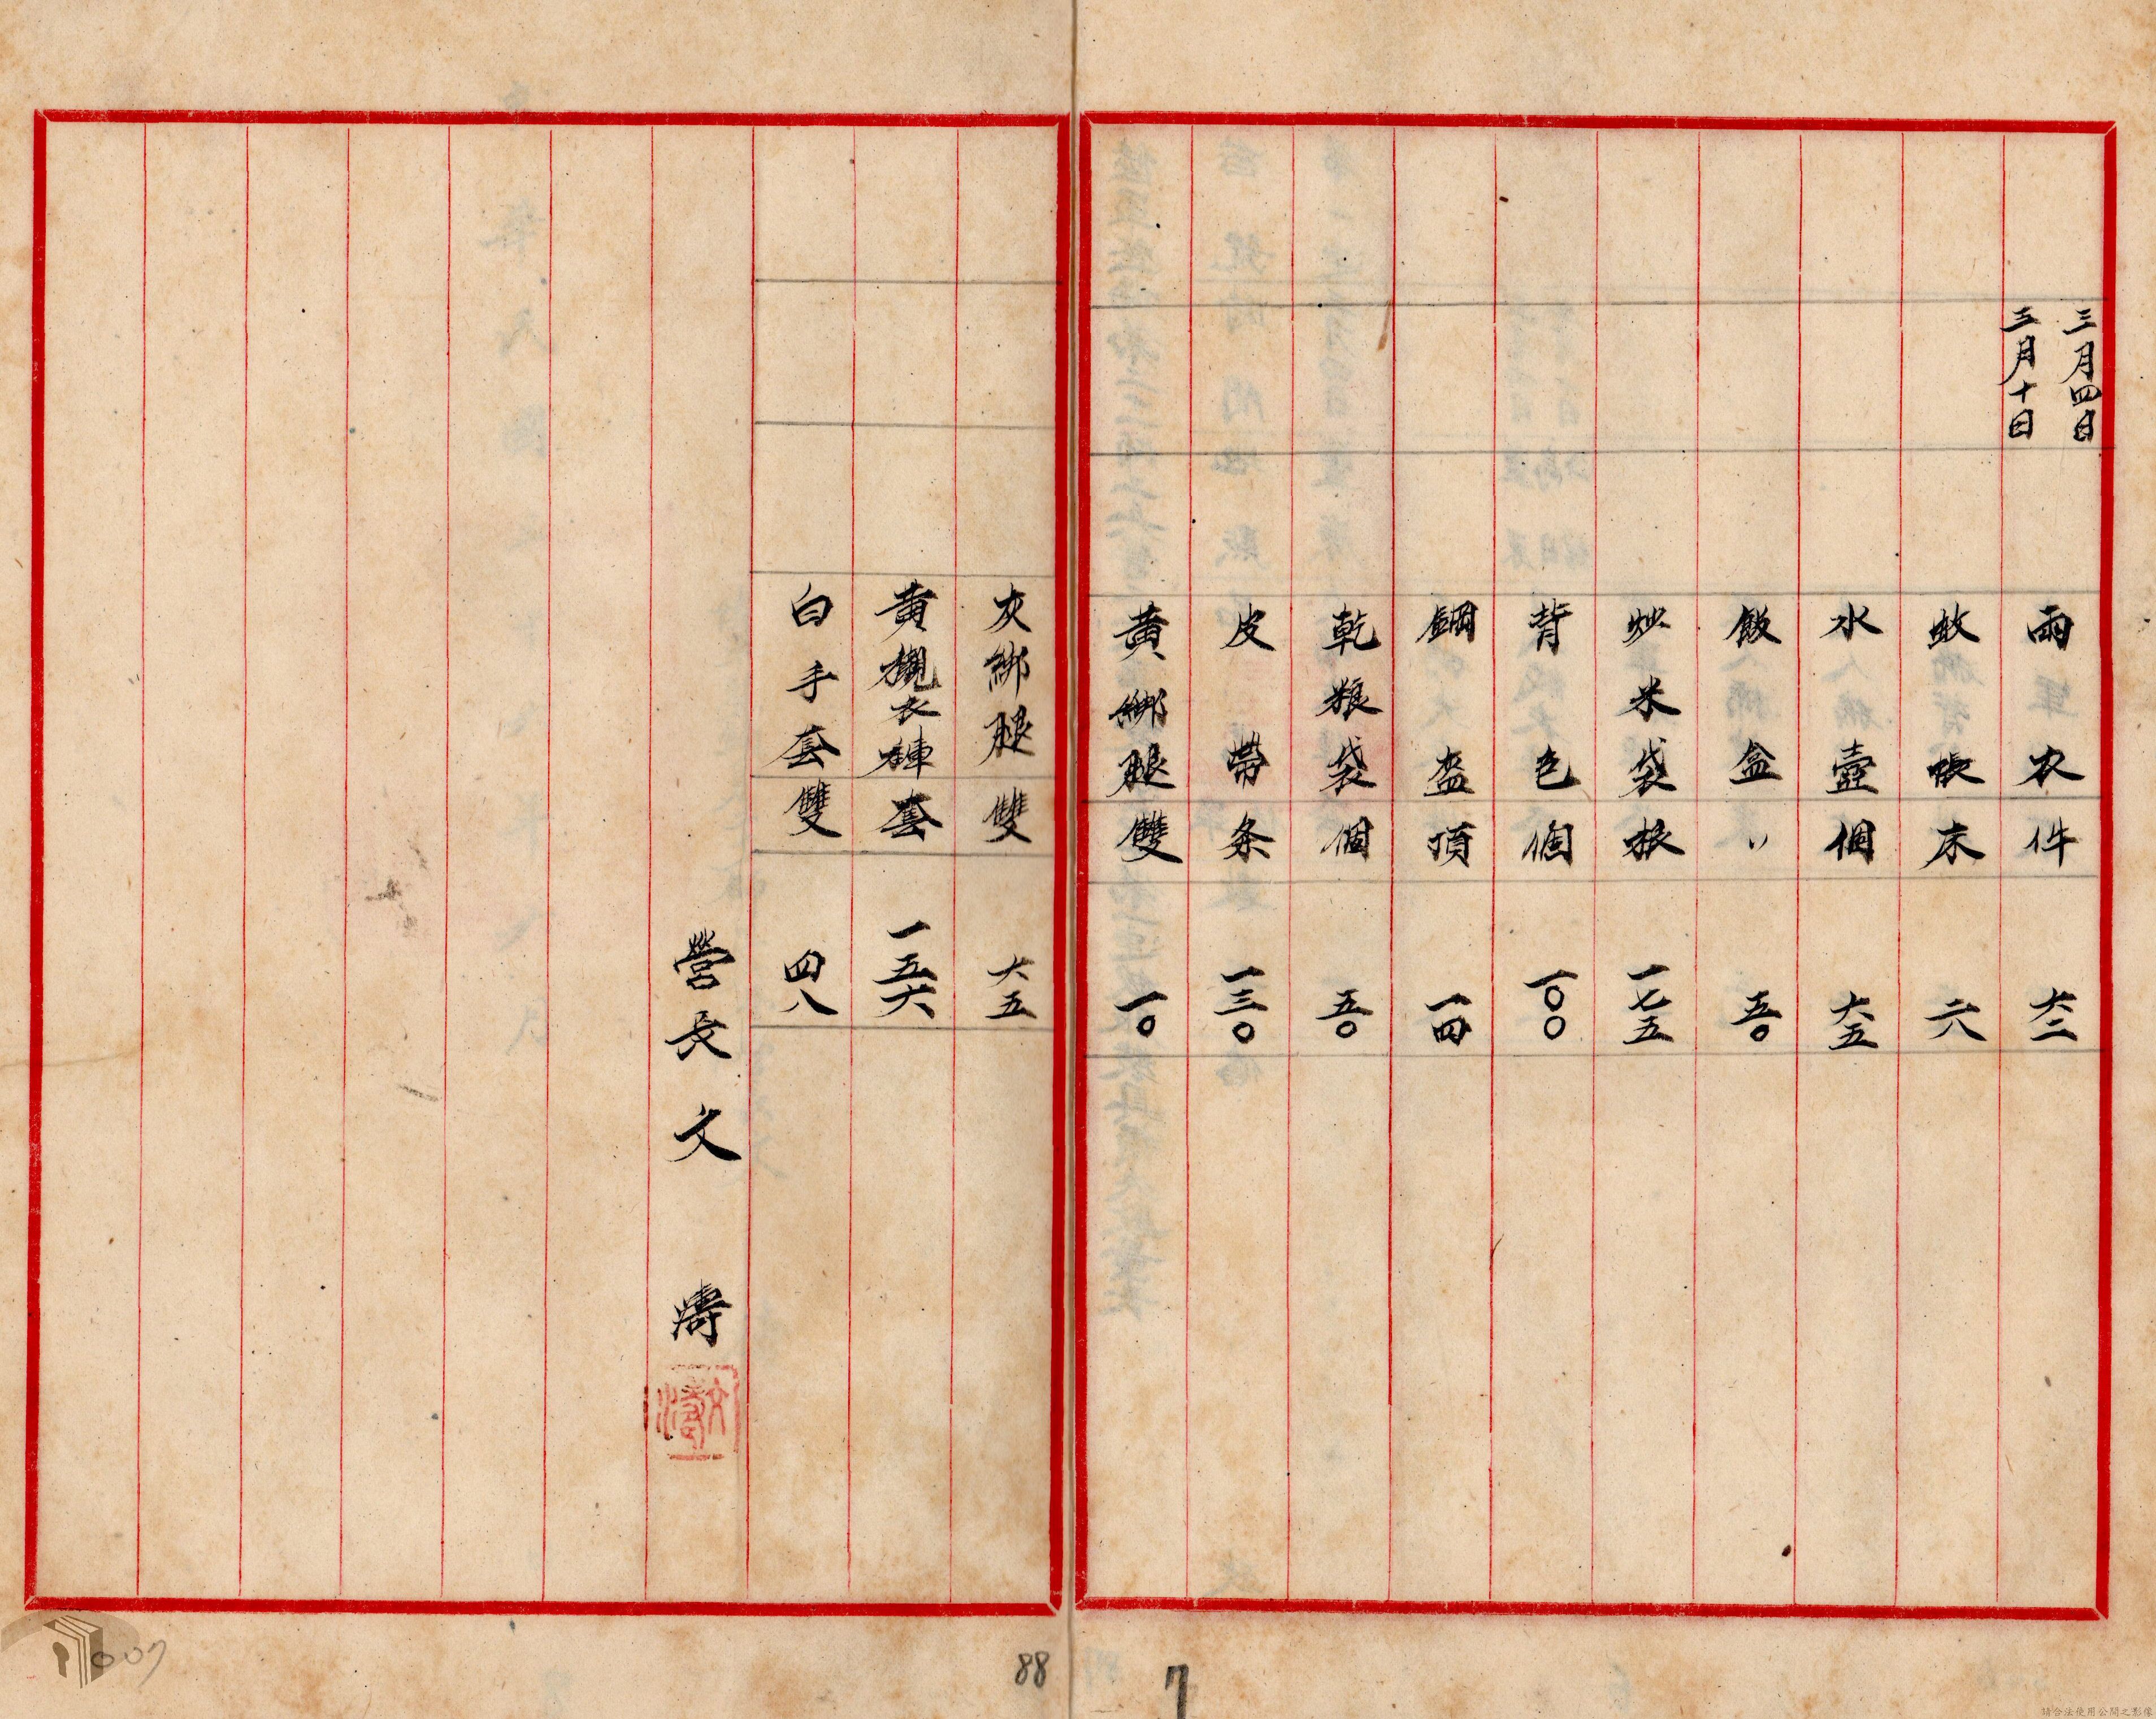 三月四日
三月十日
雨衣 件 六二
蚊帳 床 二八
水壺 個 六五
飯盒 〃 五〇
炒米袋 根 一七五
背包 個 一〇〇
鋼盔 頂 一四
乾粮袋 個 五〇
皮帶 条 一三〇
黃綁腿 雙 一〇
灰綁腿 雙 六五
黃襯衣褲 套 一五六
白手套 雙 四八
營長 文 濤
文濤
007
88
7
請合法使用公開之影像